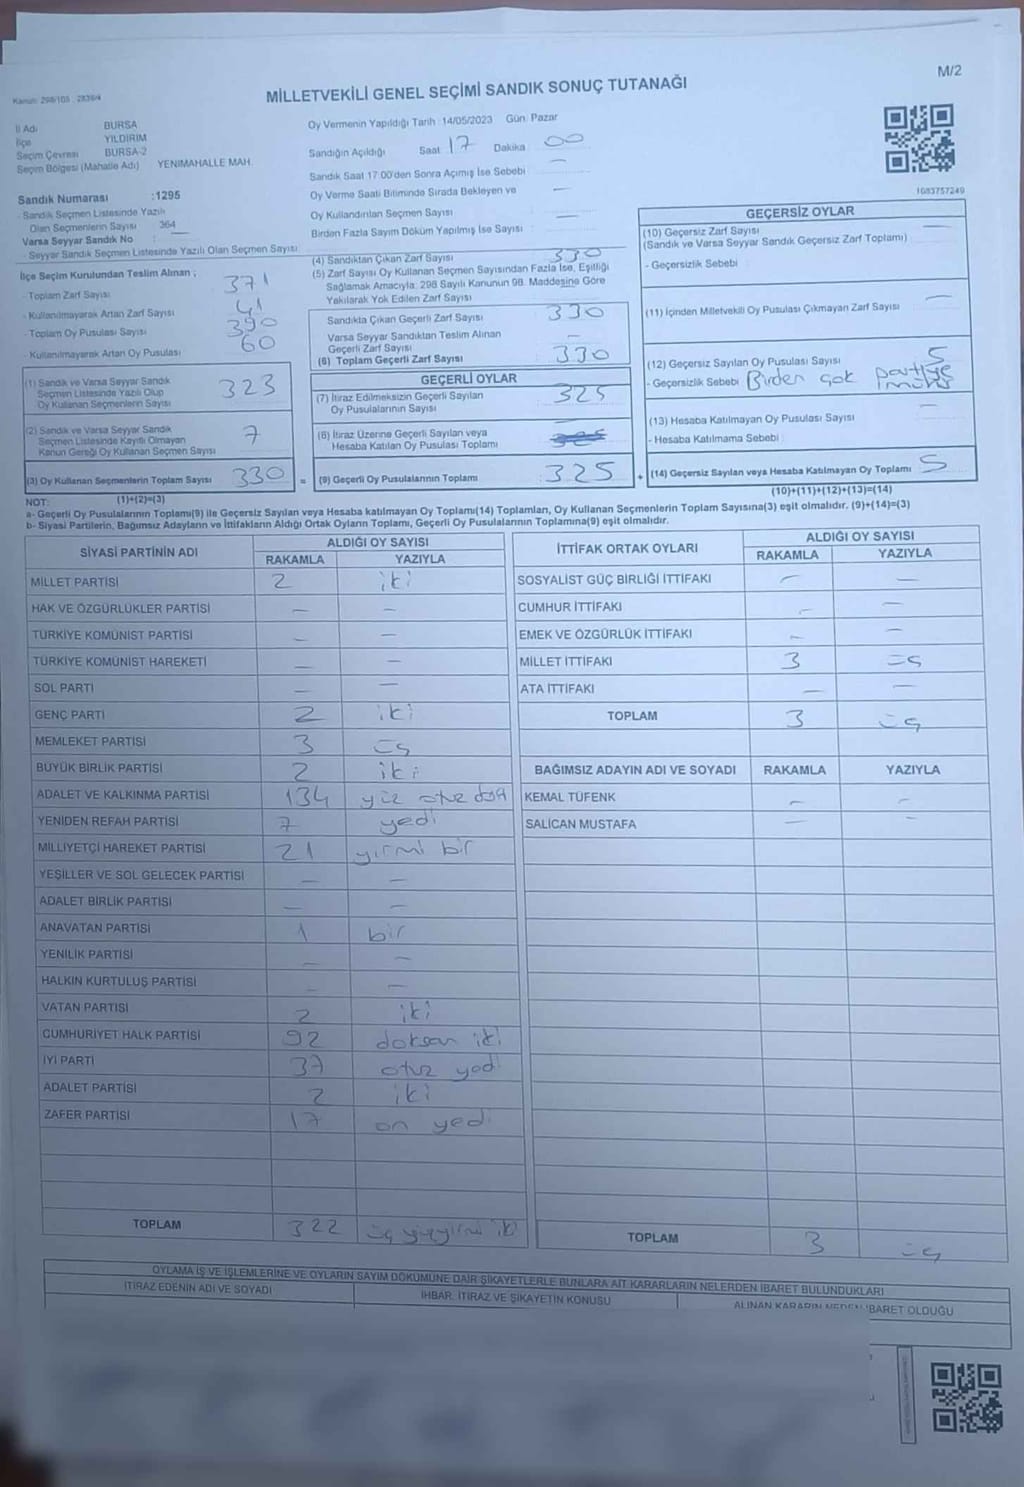 M/2
Kanun: 298/105 2839/4
MİLLETVEKİLİ GENEL SEÇİMİ SANDIK SONUÇ TUTANAĞI
İl Adı BURSA
İlçe YILDIRIM
Seçim Çevresi BURSA-2
Seçim Bölgesi (Mahalle Adı) YENİMAHALLE MAH.
Sandık Numarası :1295
- Sandık Seçmen Listesinde Yazılı
Olan Seçmenlerin Sayısı 364
Varsa Seyyar Sandık No :
- Seyyar Sandık Seçmen Listesinde Yazılı Olan Seçmen Sayısı
İlçe Seçim Kurulundan Teslim Alınan ;
- Toplam Zarf Sayısı 371
- Kullanılmayarak Artan Zarf Sayısı 41
- Toplam Oy Pusulası Sayısı 390
- Kullanılmayarak Artan Oy Pusulası 60
(1) Sandık ve Varsa Seyyar Sandık
Seçmen Listesinde Yazılı Olup
Oy Kullanan Seçmenlerin Sayısı 323
(2) Sandık ve Varsa Seyyar Sandık
Seçmen Listesinde Kayıtlı Olmayan
Kanun Gereği Oy Kullanan Seçmen Sayısı 7
(3) Oy Kullanan Seçmenlerin Toplam Sayısı 330 =
(1)+(2)=(3)
Oy Vermenin Yapıldığı Tarih :14/05/2023 Gün: Pazar
Sandığın Açıldığı Saat 17 Dakika : 00
Sandık Saat 17:00'den Sonra Açılmış İse Sebebi —
Oy Verme Saati Bitiminde Sırada Bekleyen ve —
Oy Kullandırılan Seçmen Sayısı —
Birden Fazla Sayım Döküm Yapılmış İse Sayısı : —
(4) Sandıktan Çıkan Zarf Sayısı 330
(5) Zarf Sayısı Oy Kullanan Seçmen Sayısından Fazla İse, Eşitliği
Sağlamak Amacıyla; 298 Sayılı Kanunun 98. Maddesine Göre
Yakılarak Yok Edilen Zarf Sayısı —
Sandıkta Çıkan Geçerli Zarf Sayısı 330
Varsa Seyyar Sandıktan Teslim Alınan
Geçerli Zarf Sayısı —
(6) Toplam Geçerli Zarf Sayısı 330
GEÇERLİ OYLAR
(7) İtiraz Edilmeksizin Geçerli Sayılan
Oy Pusulalarının Sayısı 325
(8) İtiraz Üzerine Geçerli Sayılan veya
Hesaba Katılan Oy Pusulası Toplamı
(9) Geçerli Oy Pusulalarının Toplamı 325 +
1083757249
GEÇERSİZ OYLAR
(10) Geçersiz Zarf Sayısı —
(Sandık ve Varsa Seyyar Sandık Geçersiz Zarf Toplamı)
- Geçersizlik Sebebi :
(11) İçinden Milletvekili Oy Pusulası Çıkmayan Zarf Sayısı —
(12) Geçersiz Sayılan Oy Pusulası Sayısı 5
- Geçersizlik Sebebi Birden çok partiye mühür
(13) Hesaba Katılmayan Oy Pusulası Sayısı —
- Hesaba Katılmama Sebebi :
(14) Geçersiz Sayılan veya Hesaba Katılmayan Oy Toplamı 5
(10)+(11)+(12)+(13)=(14)
NOT:
a- Geçerli Oy Pusulalarının Toplamı(9) ile Geçersiz Sayılan veya Hesaba katılmayan Oy Toplamı(14) Toplamları, Oy Kullanan Seçmenlerin Toplam Sayısına(3) eşit olmalıdır. (9)+(14)=(3)
b- Siyasi Partilerin, Bağımsız Adayların ve İttifakların Aldığı Ortak Oyların Toplamı, Geçerli Oy Pusulalarının Toplamına(9) eşit olmalıdır.
SİYASİ PARTİNİN ADI ALDIĞI OY SAYISI
RAKAMLA YAZIYLA
MİLLET PARTİSİ 2 iki
HAK VE ÖZGÜRLÜKLER PARTİSİ — —
TÜRKİYE KOMÜNİST PARTİSİ — —
TÜRKİYE KOMÜNİST HAREKETİ — —
SOL PARTİ — —
GENÇ PARTİ 2 iki
MEMLEKET PARTİSİ 3 üç
BÜYÜK BİRLİK PARTİSİ 2 iki
ADALET VE KALKINMA PARTİSİ 134 yüz otuz dört
YENİDEN REFAH PARTİSİ 7 yedi
MİLLİYETÇİ HAREKET PARTİSİ 21 yirmi bir
YEŞİLLER VE SOL GELECEK PARTİSİ — —
ADALET BİRLİK PARTİSİ — —
ANAVATAN PARTİSİ 1 bir
YENİLİK PARTİSİ — —
HALKIN KURTULUŞ PARTİSİ — —
VATAN PARTİSİ 2 iki
CUMHURİYET HALK PARTİSİ 92 doksan iki
İYİ PARTİ 37 otuz yedi
ADALET PARTİSİ 2 iki
ZAFER PARTİSİ 17 on yedi
TOPLAM 322 üç yüz yirmi iki
İTTİFAK ORTAK OYLARI ALDIĞI OY SAYISI
RAKAMLA YAZIYLA
SOSYALİST GÜÇ BİRLİĞİ İTTİFAKI — —
CUMHUR İTTİFAKI — —
EMEK VE ÖZGÜRLÜK İTTİFAKI — —
MİLLET İTTİFAKI 3 üç
ATA İTTİFAKI — —
TOPLAM 3 üç
BAĞIMSIZ ADAYIN ADI VE SOYADI RAKAMLA YAZIYLA
KEMAL TÜFENK — —
SALİCAN MUSTAFA — —
TOPLAM 3 üç
OYLAMA İŞ VE İŞLEMLERİNE VE OYLARIN SAYIM DÖKÜMÜNE DAİR ŞİKAYETLERLE BUNLARA AİT KARARLARIN NELERDEN İBARET BULUNDUKLARI
İTİRAZ EDENİN ADI VE SOYADI İHBAR, İTİRAZ VE ŞİKAYETİN KONUSU ALINAN KARARIN NEDEN İBARET OLDUĞU